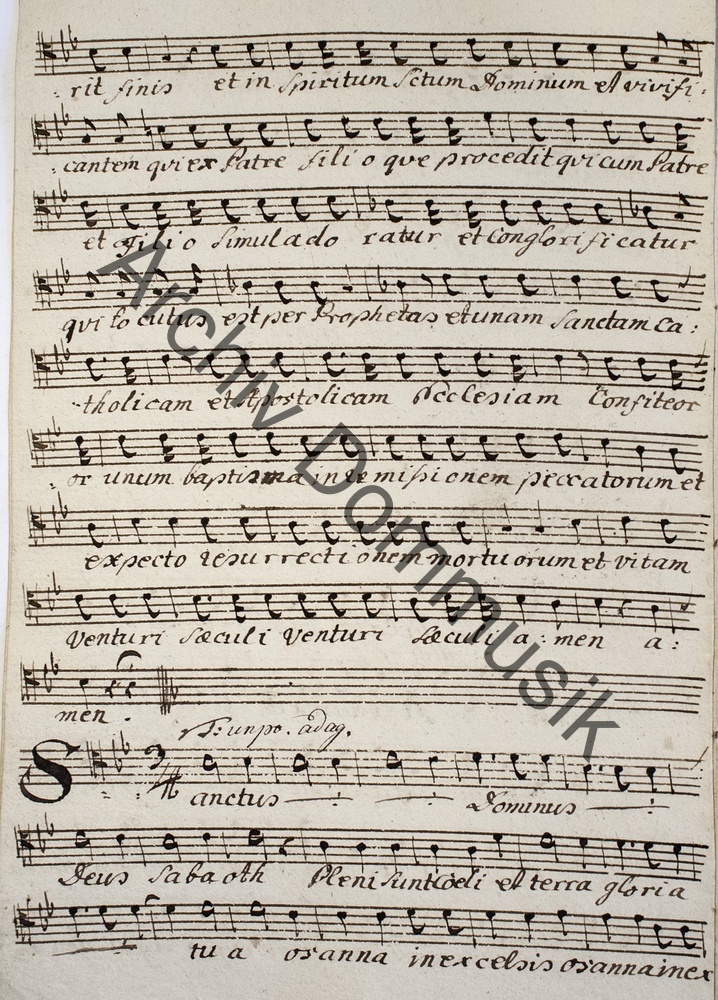 rit finis et in Spiritum Sctum Dominum et vivifi:
cantem qui ex Patre filio que procedit qui cum Patre
et filio simul ado ratur et Conglorificatur
qui locutus est per Prophetas et unam Sanctam Ca:
tholicam et Apostolicam Ecclesiam Confiteor
or unum baptisma in remissionem peccatorum et
expecto resurrectionem mortuorum et vitam
Venturi Sæculi Venturi Sæculi a: men a:
men.
un po. adag.
Sanctus Dominus
Deus Sabaoth Pleni sunt cœli et terra gloria
tu a osanna in excelsis osanna in ex
Archiv Dommusik